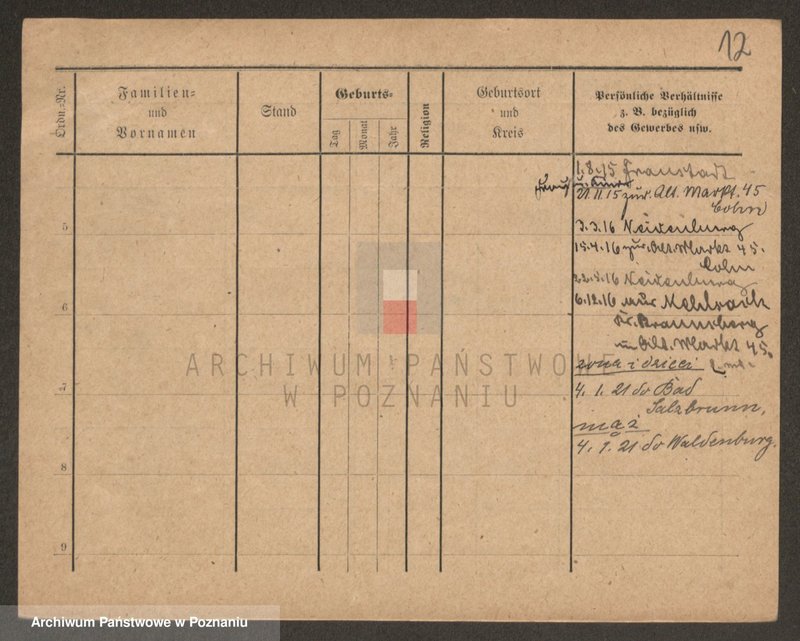 12
Ordn.-Nr.
Familien-
und
Vornamen
Stand
Geburts-
Tag
Monat
Jahr
Religion
Geburtsort
und
Kreis
Persönliche Verhältnisse
z. B. bezüglich
des Gewerbes usw.
1.8.15 Fraustadt
21.11.15 zur. Alt. Markt. 45
Cohn
5
3.3.16 Neidenburg
15.4.16 zur. Alt. Markt 45.
Cohn
22.5.16 Neidenburg
6
6.12.16 nur Mehlsack
Kr. Braunsberg
Alt. Markt 45.
żona i dzieci
7
4. 1. 21 do Bad
Salzbrunn,
mąż
4. 1. 21 do Waldenburg.
8
9
ARCHIWUM PAŃSTWOWE
W POZNANIU
Archiwum Państwowe w Poznaniu